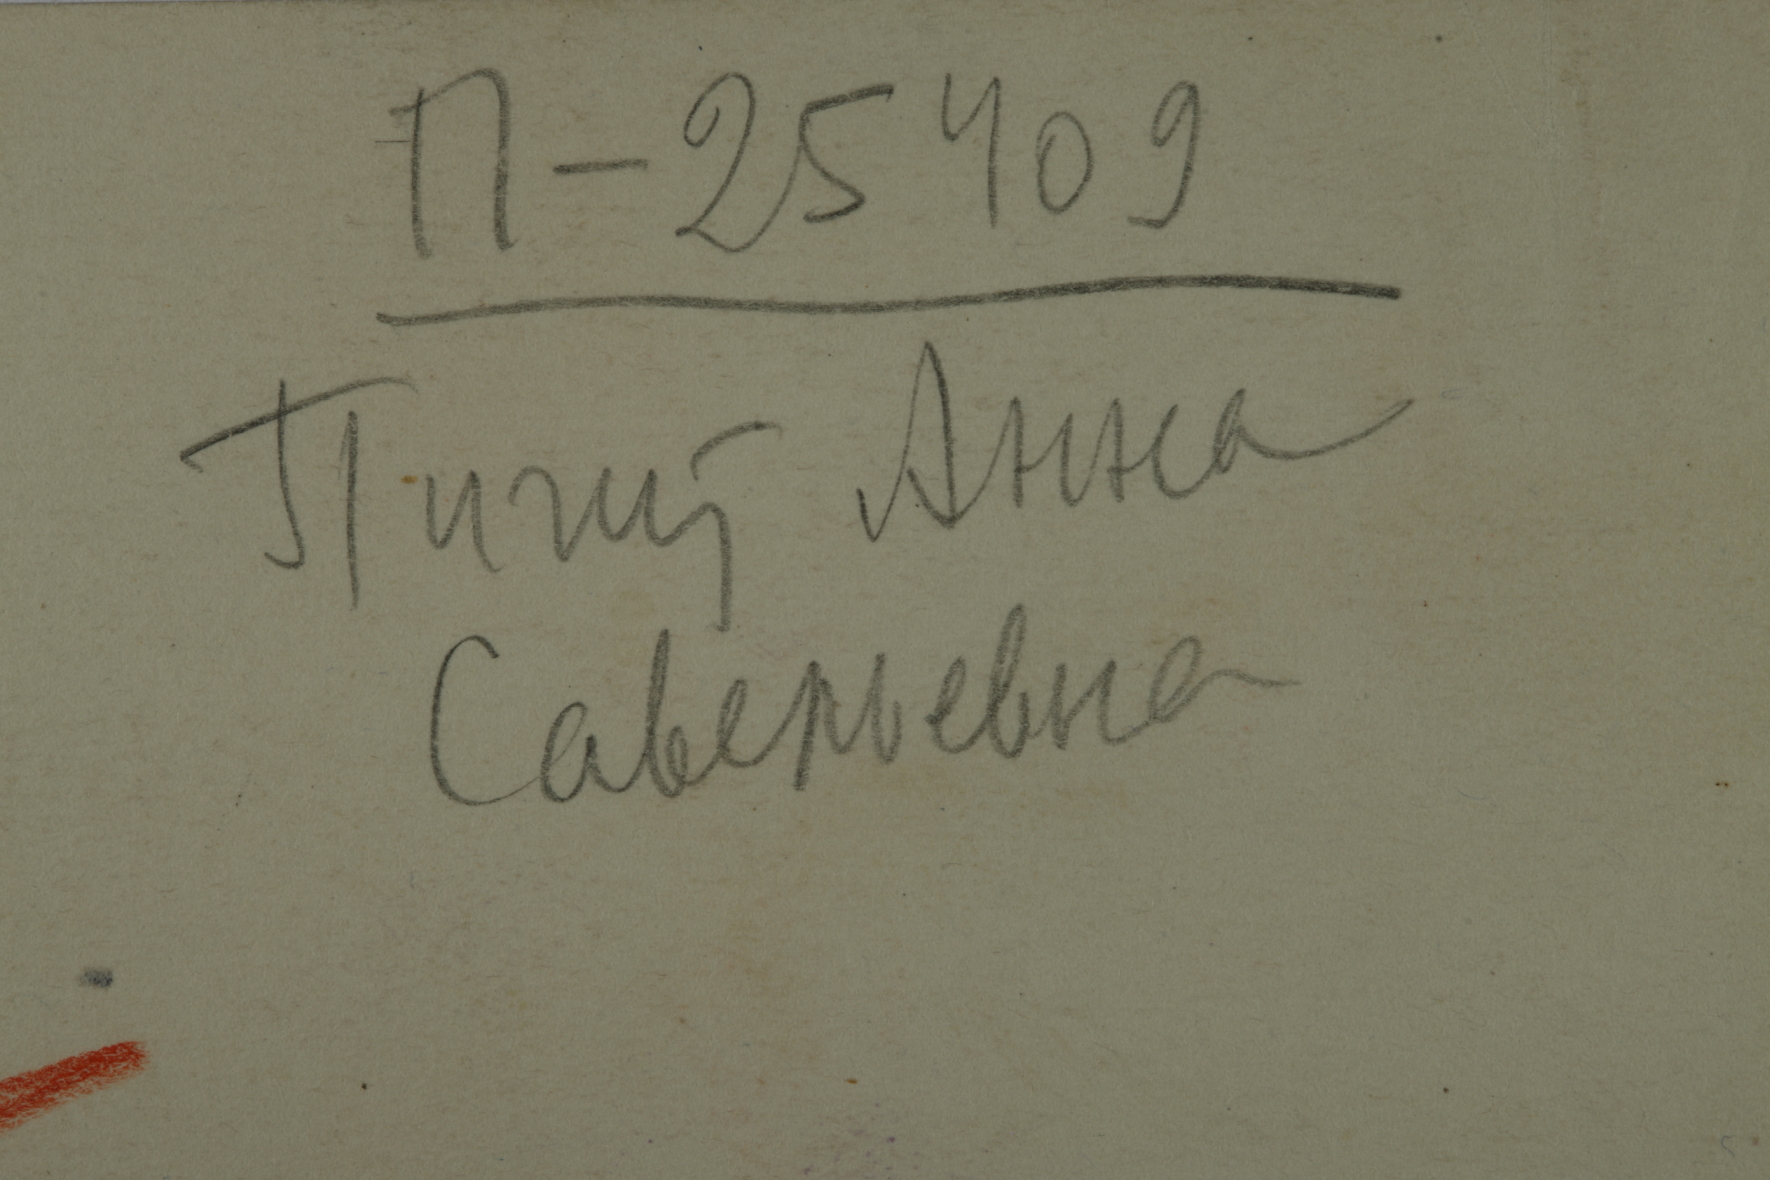 П-25409
Пигиц Анна
Саверьевна